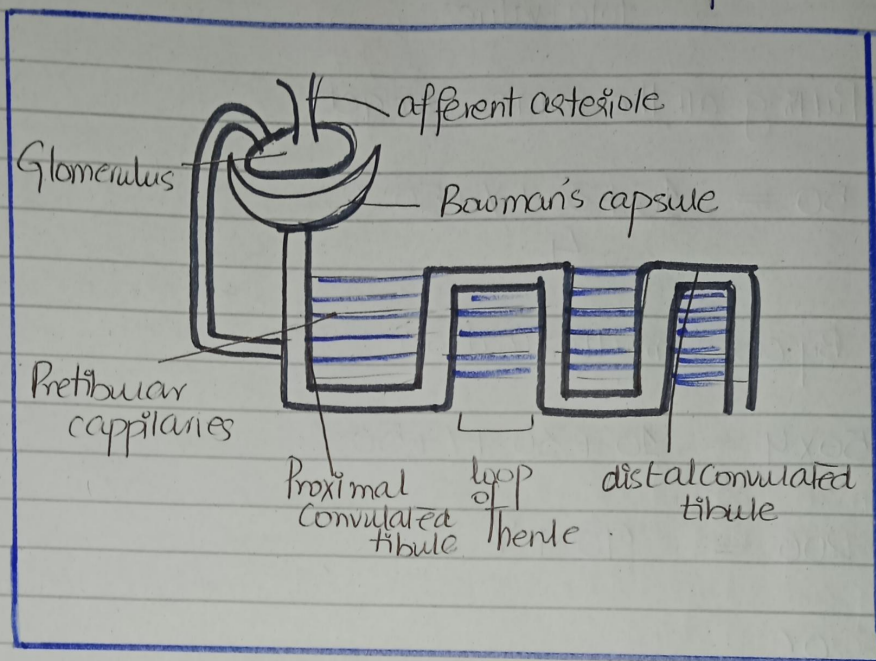 afferent arteriole
Glomerulus
Bowman's capsule
Pretibular
cappilaries
Proximal
Convulated
tibule
loop
of
henle
distal convulated
tibule